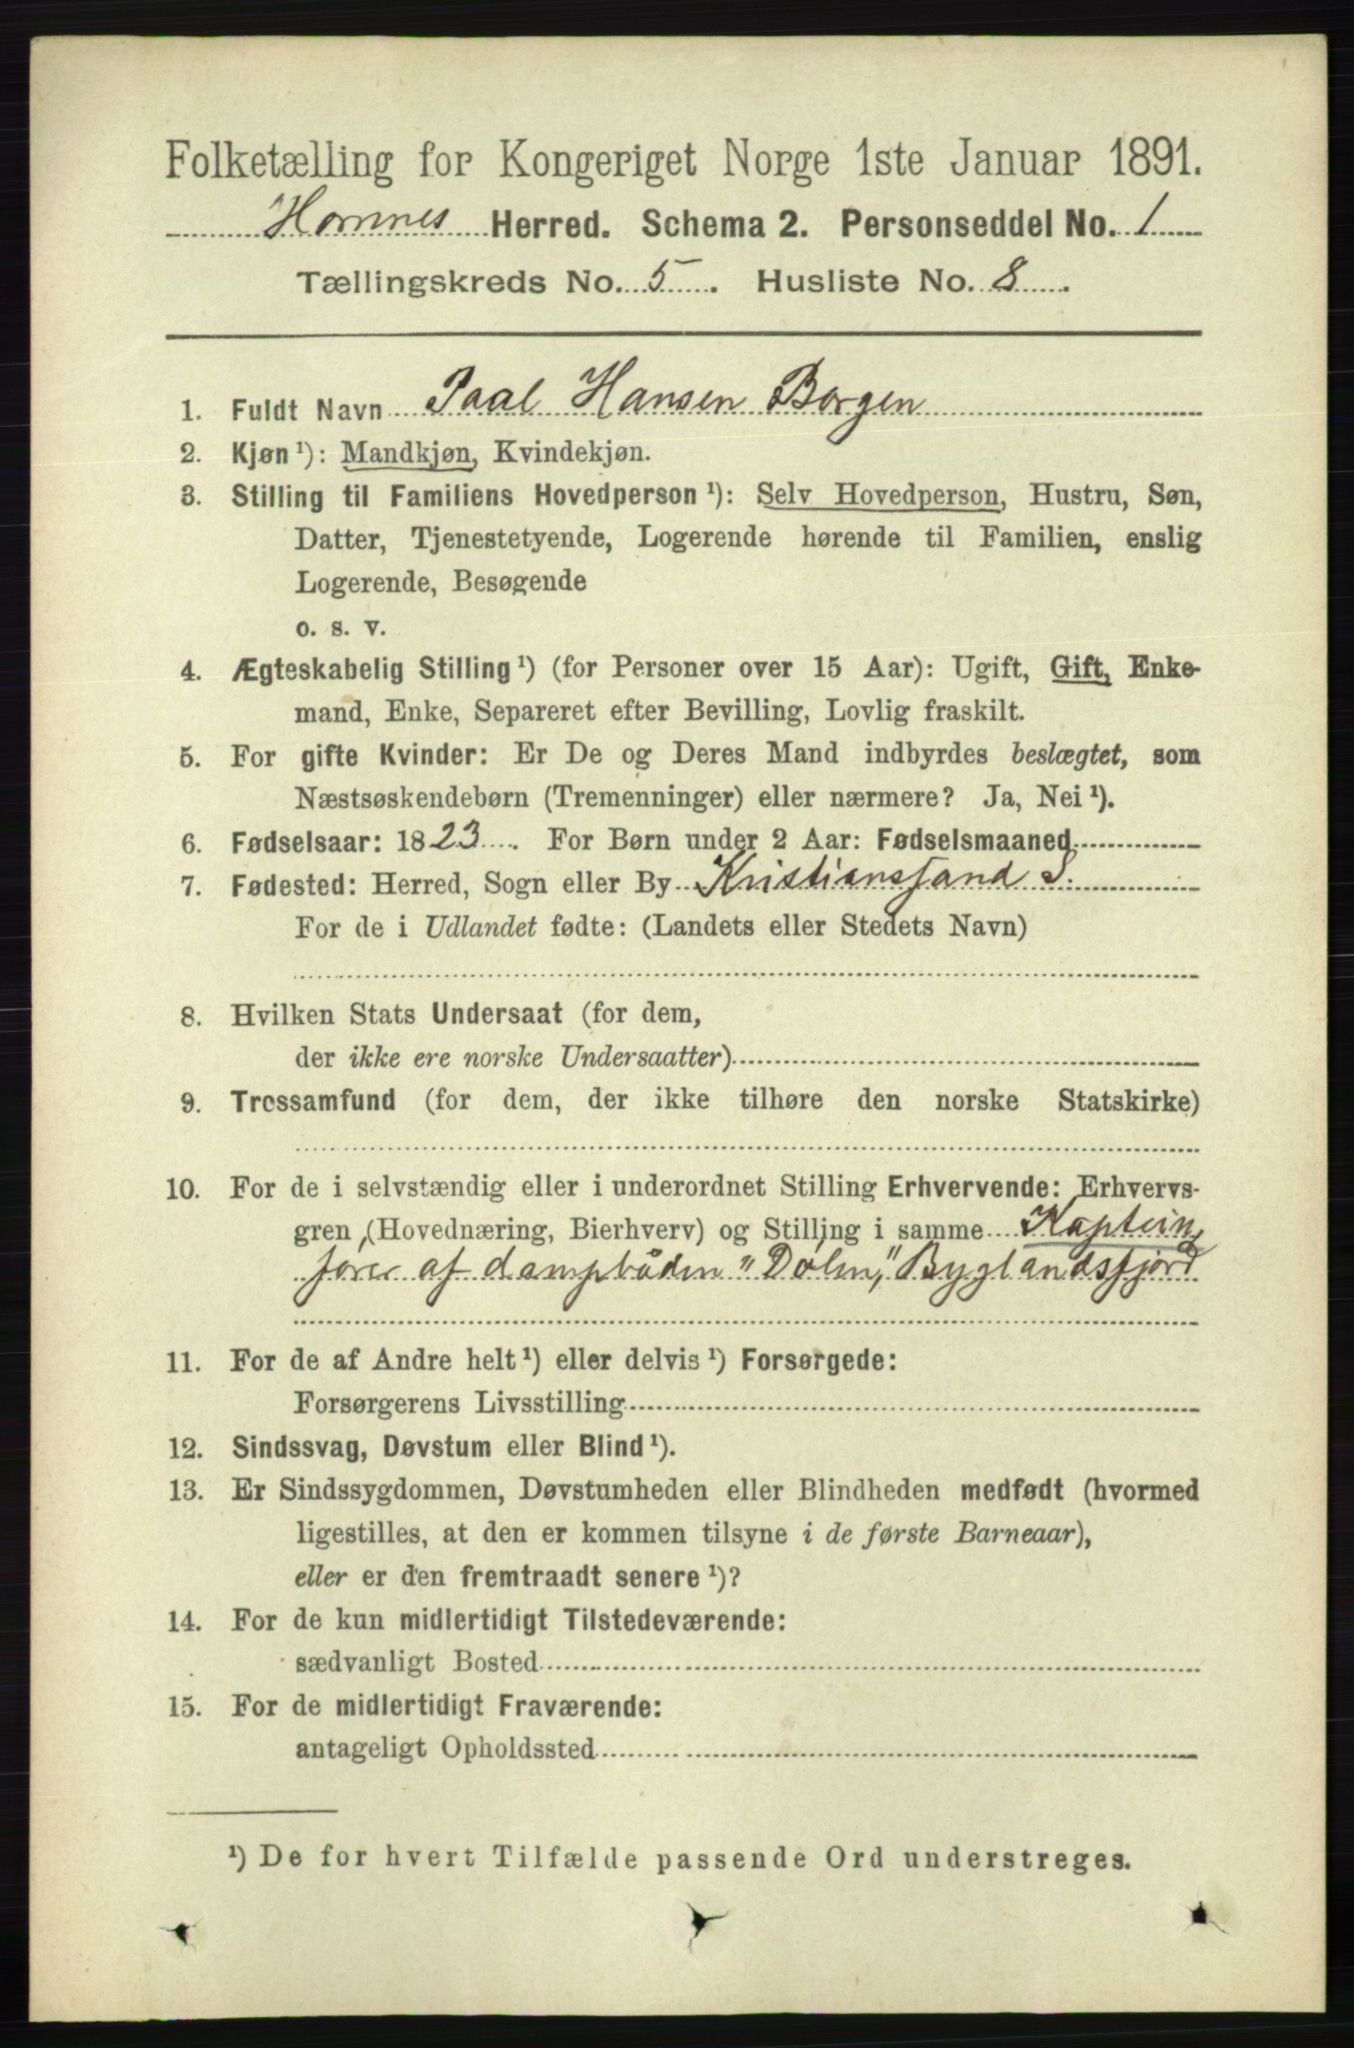 Folketælling for Kongeriget Norge 1ste Januar 1891.
Hornnes Herred. Schema 2. Personseddel No. 1
Tællingskreds No. 5. Husliste No. 8.
1. Fuldt Navn Paal Hansen Borgen
2. Kjøn ¹): Mandkjøn, Kvindekjøn.
3. Stilling til Familiens Hovedperson ¹): Selv Hovedperson, Hustru, Søn,
Datter, Tjenestetyende, Logerende hørende til Familien, enslig
Logerende, Besøgende
o. s. v.
4. Ægteskabelig Stilling ¹) (for Personer over 15 Aar): Ugift, Gift, Enke-
mand, Enke, Separeret efter Bevilling, Lovlig fraskilt.
5. For gifte Kvinder: Er De og Deres Mand indbyrdes beslægtet, som
Næstsøskendebørn (Tremenninger) eller nærmere? Ja, Nei ¹).
6. Fødselsaar: 1823. For Børn under 2 Aar: Fødselsmaaned
7. Fødested: Herred, Sogn eller By Kristiansand S.
For de i Udlandet fødte: (Landets eller Stedets Navn)
8. Hvilken Stats Undersaat (for dem,
der ikke ere norske Undersaatter)
9. Trossamfund (for dem, der ikke tilhøre den norske Statskirke)
10. For de i selvstændig eller i underordnet Stilling Erhvervende: Erhvervs-
gren (Hovednæring, Bierhverv) og Stilling i samme Kaptein,
fører af dampbåden "Dølen," Byglandsfjord
11. For de af Andre helt ¹) eller delvis ¹) Forsørgede:
Forsørgerens Livsstilling
12. Sindssvag, Døvstum eller Blind ¹).
13. Er Sindssygdommen, Døvstumheden eller Blindheden medfødt (hvormed
ligestilles, at den er kommen tilsyne i de første Barneaar),
eller er den fremtraadt senere ¹)?
14. For de kun midlertidigt Tilstedeværende:
sædvanligt Bosted
15. For de midlertidigt Fraværende:
antageligt Opholdssted
¹) De for hvert Tilfælde passende Ord understreges.